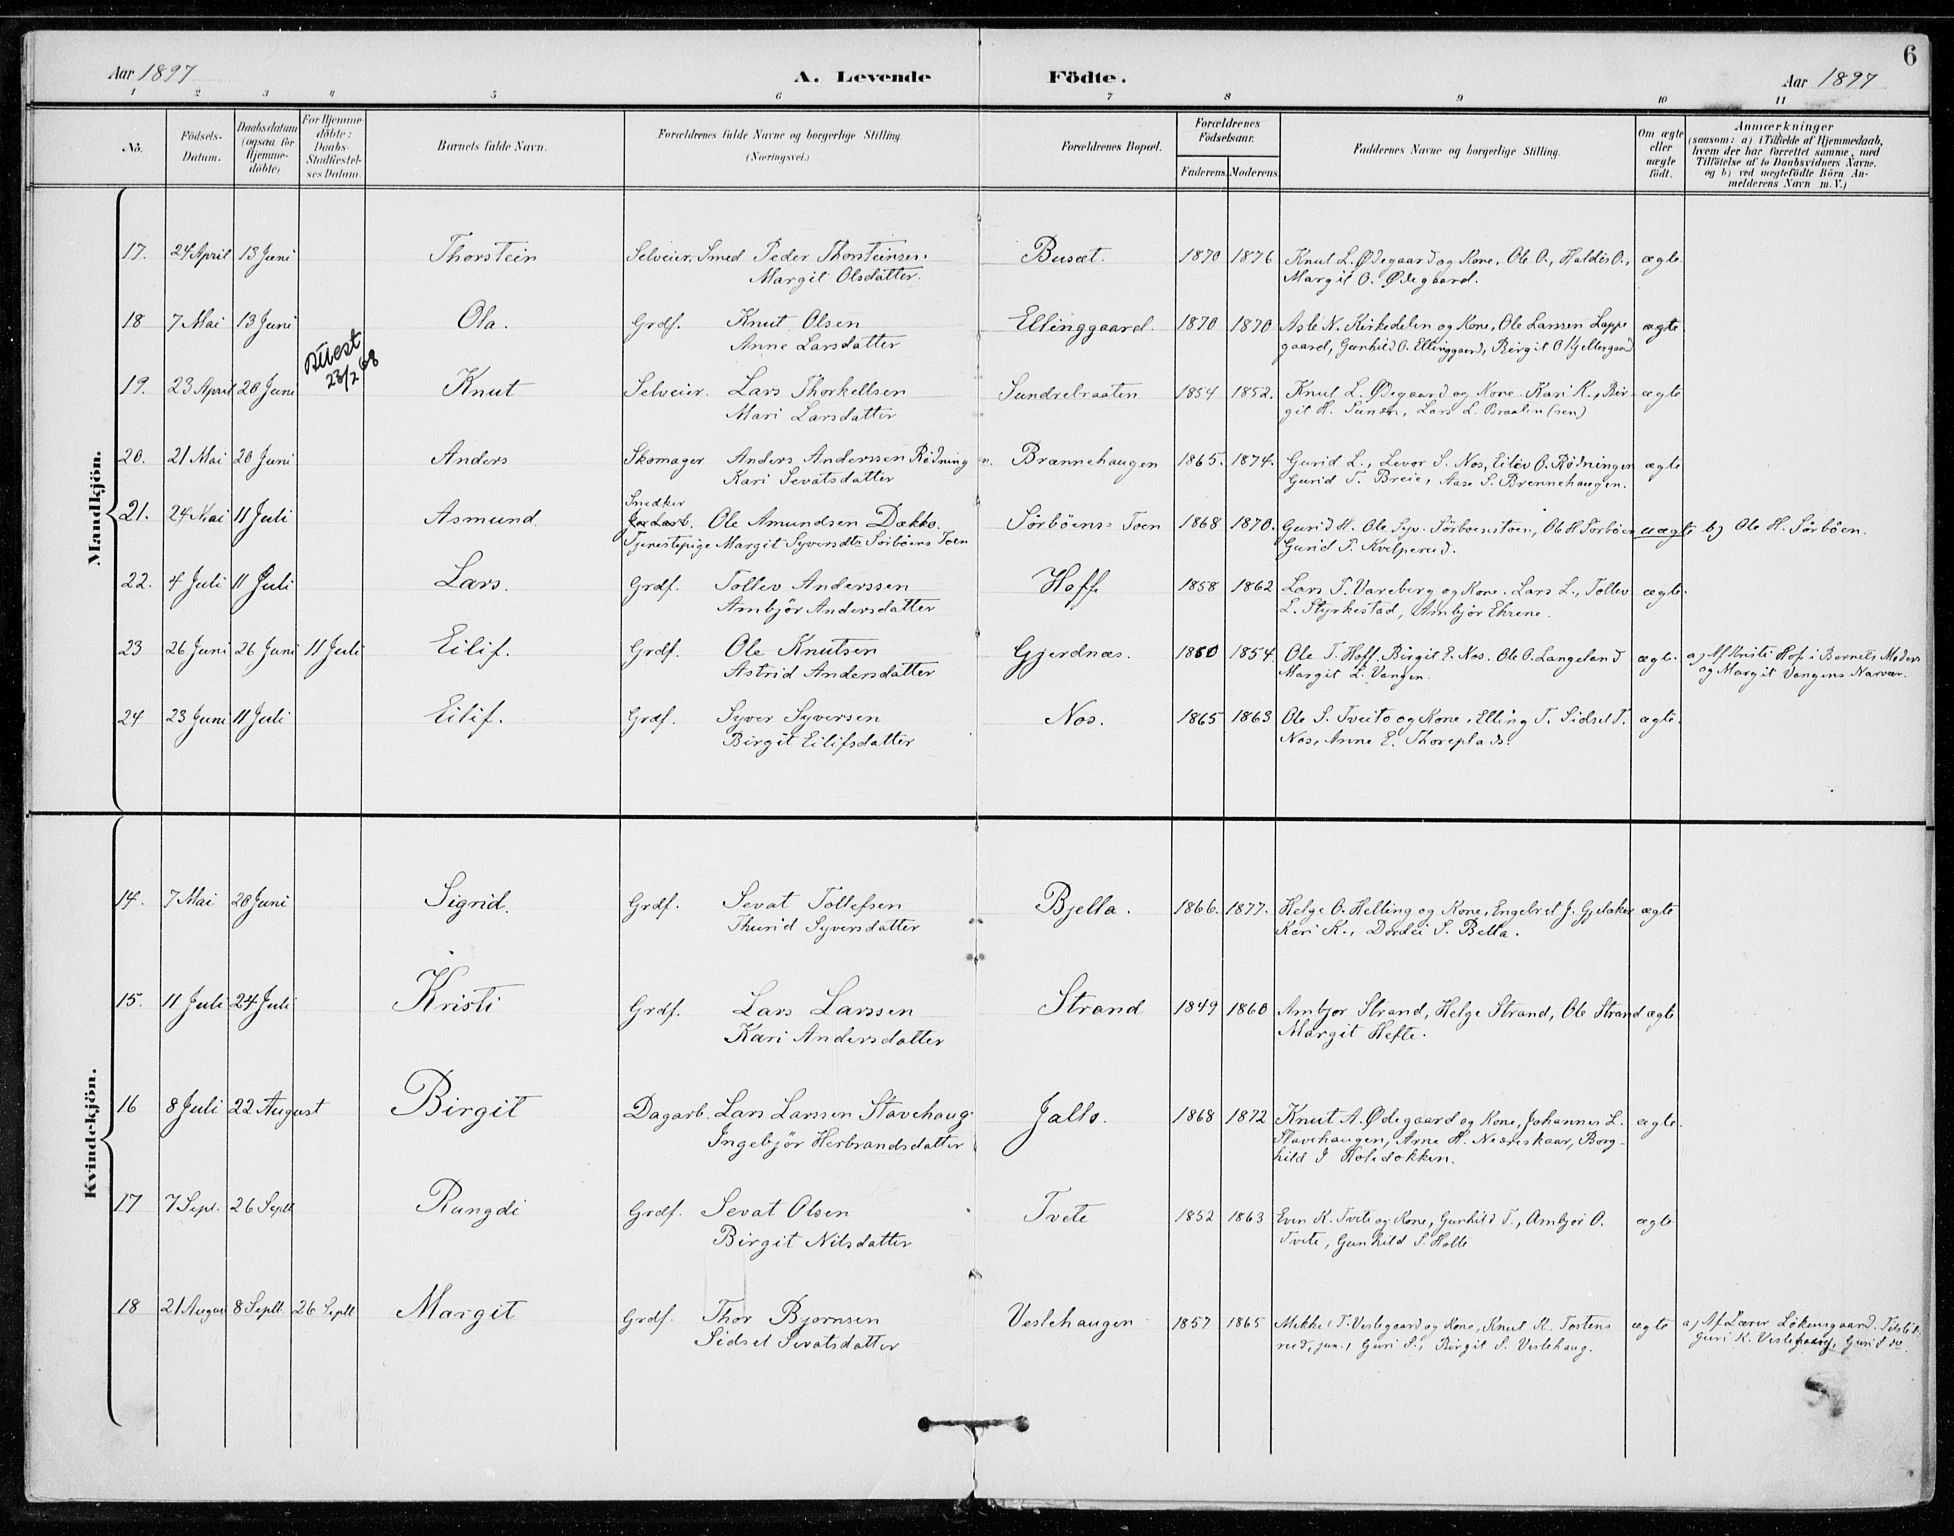 6
Aar 1897 A. Levende Födte. Aar 1897
1 2 3 4 5 6 7 8 9 10 11
No. Födsels-Datum. Daabsdatum (ogsaa for Hjemmedöbte) For Hjemmedöbte: Daabs-Stadfæstelses Datum. Barnets fulde Navn. Forældrenes fulde Navne og borgerlige Stilling. (Næringsvei.) Forældrenes Bopæl. Forældrenes Födselsaar. Faderens. Moderens. Faddernes Navne og borgerlige Stilling. Om ægte eller uægte födt. Anmærkninger (saasom: a) i Tilfælde af Hjemmedaab, hvem der har forrettet samme, med Tilföielse af to Daabsvidners Navne, og b) ved uægtefödte Börn Anmelderens Navn m.V.)
Mandkjön.
17. 24 April 13 Juni Thorstein Selveier, Smed Peder Thorsteinsen Busæt. 1870 1876 Knut L. Ødegaard og Kone, Ole O., Haldis O., ægte.
Margit Olsdatter. Margit O. Ødegaard.
18 7 Mai 13 Juni Ola. Grdf. Knut Olsen Ellinggaard. 1870 1870 Asle N. Kirkedelen og Kone, Ole Larssen Loppe ægte
Anne Larsdatter gaard, Gunhild O. Ellinggaard, Birgit O.
Attest
23/2 68
19. 23 April 20 Juni Knut Selveier. Lars Thorkellsen Sundrebraaten 1854 1852. Knut L. Ødegaard og Kone. Kari K., Bir- ægte
Mari Larsdatter git H. Lars L. Braaten (sen)
20. 21 Mai 20 Juni Anders Skomager Anders Anderssen Rødningen. Brænnehaugen 1865. 1874. Gurid L., Levor S. Nos, Eilev O. Rødningen ægte
Kari Sevatsdatter Gurid T. Breie, Aase S. Brennehaugen.
21. 24 Mai 11 Juli Asmund Snedker
Ole Amundsen Dækko. Sörböens Toen 1868 1870. Gurid H. Ole Syv. Sörboenstoen, Ole H. Sorböen uægte b) Ole H. Sörböen.
Tjenestepige Margit Syversdtr Sörböens Toen Gurid T. Kvelprud.
22. 4 Juli 11 Juli Lars. Grdf. Tollev Anderssen Hoff 1858 1862 Lars T. Vareberg og Kone. Lars L., Tollev ægte.
Ambjör Andersdatter L. Styrkestad, Ambjör Ehrene.
23 26 Juni 26 Juni 11 Juli Eilif. Grdf. Ole Knutsen Gjerdnæs. 1850 1854. Ole T. Hoff, Birgit E. Nos. Ole O. Langeland ægte. a) Af Kristi Hof i Barnets Moders
Astrid Andersdatter Margit L. Vangen. og Margit Vangens Nærvær.
24 23 Juni 11 Juli Eilif. Grdf. Syver Syversen Nos. 1865 1863 Ole S. Tveito og Kone, Elling T., Sidsel T. ægte.
Birgit Eilifsdatter Nos, Anne E. Thoreplads.
Kvindekjön.
14. 7 Mai 20 Juni Sigrid. Grdf. Sevat Tollefsen Bjella. 1866. 1877. Helge O. Helling og Kone, Engebret J. Gjelaker ægte
Thurid Syversdatter Kari K., Dordei S. Bella.
15. 11 Juli 24 Juli Kristi Grdf. Lars Larssen Strand 1849 1860 Ambjor Strand, Helge Strand, Ole Strand ægte
Kari Andersdatter Margit Hefte.
16 8 Juli 22 August Birgit Dagarb. Lars Larssen Stavehaug Jallo. 1868 1872 Knut A. Ødegaard og Kone, Johannes L. ægte.
Ingebjör Herbrandsdatter Stavehaugen, Arne H. Næreskaar, Borg-
hild J Holedokken.
17 7 Sept. 26 Septr Rangdi Grdf. Sevat Olsen Tvete 1852 1863 Even K. Tvete og Kone, Gunhild T., Ambjör O. ægte
Birgit Nilsdatter Tvete, Gunhild S. Holte
18 21 August 8 Septr. 26 Septr Margit Grdf. Thor Bjornsen Veslehaugen 1857 1865 Mikkel T. Veslegaard og Kone, Knut K. Tostens ægte a) Af Lærer Lökensgaard. Tilsted.
Sidsel Sevatsdatter rud, jun., Guri S., Birgit S. Veslehaug. Guri K. Veslehaug, Gurid do